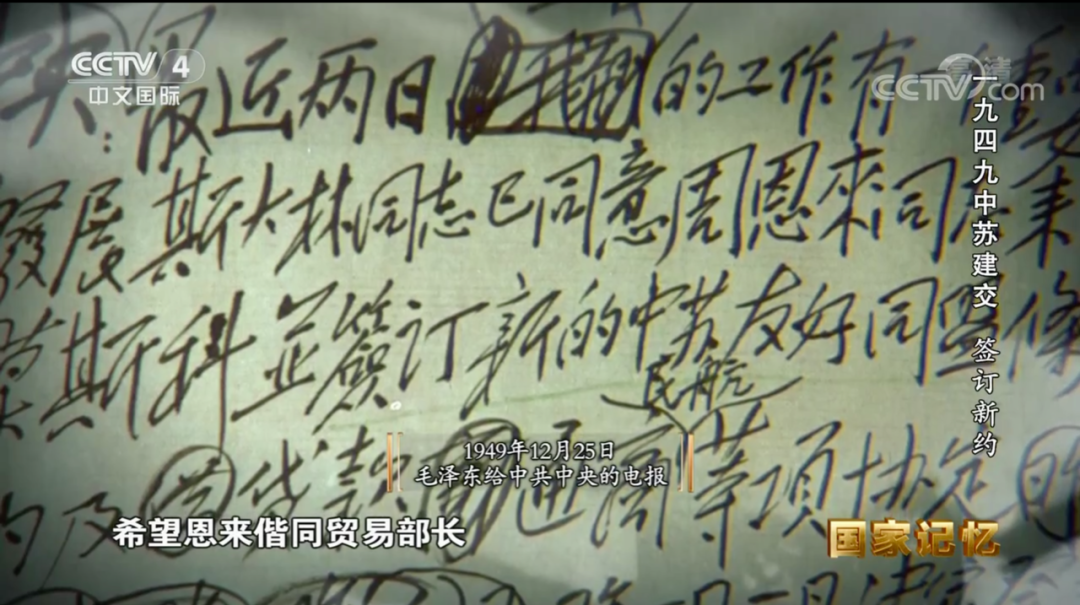 CCTV 4
中文国际
高清
CCTV.com
一九四九中苏建交 签订新约
央:最近两日的工作有一个重要
發展斯大林同志已同意周恩來同志来
莫斯科並簽订新的中苏友好同盟條
民航
约及貸款通商等项协定
1949年12月25日
毛泽东给中共中央的电报
希望恩来偕同贸易部长
国家记忆